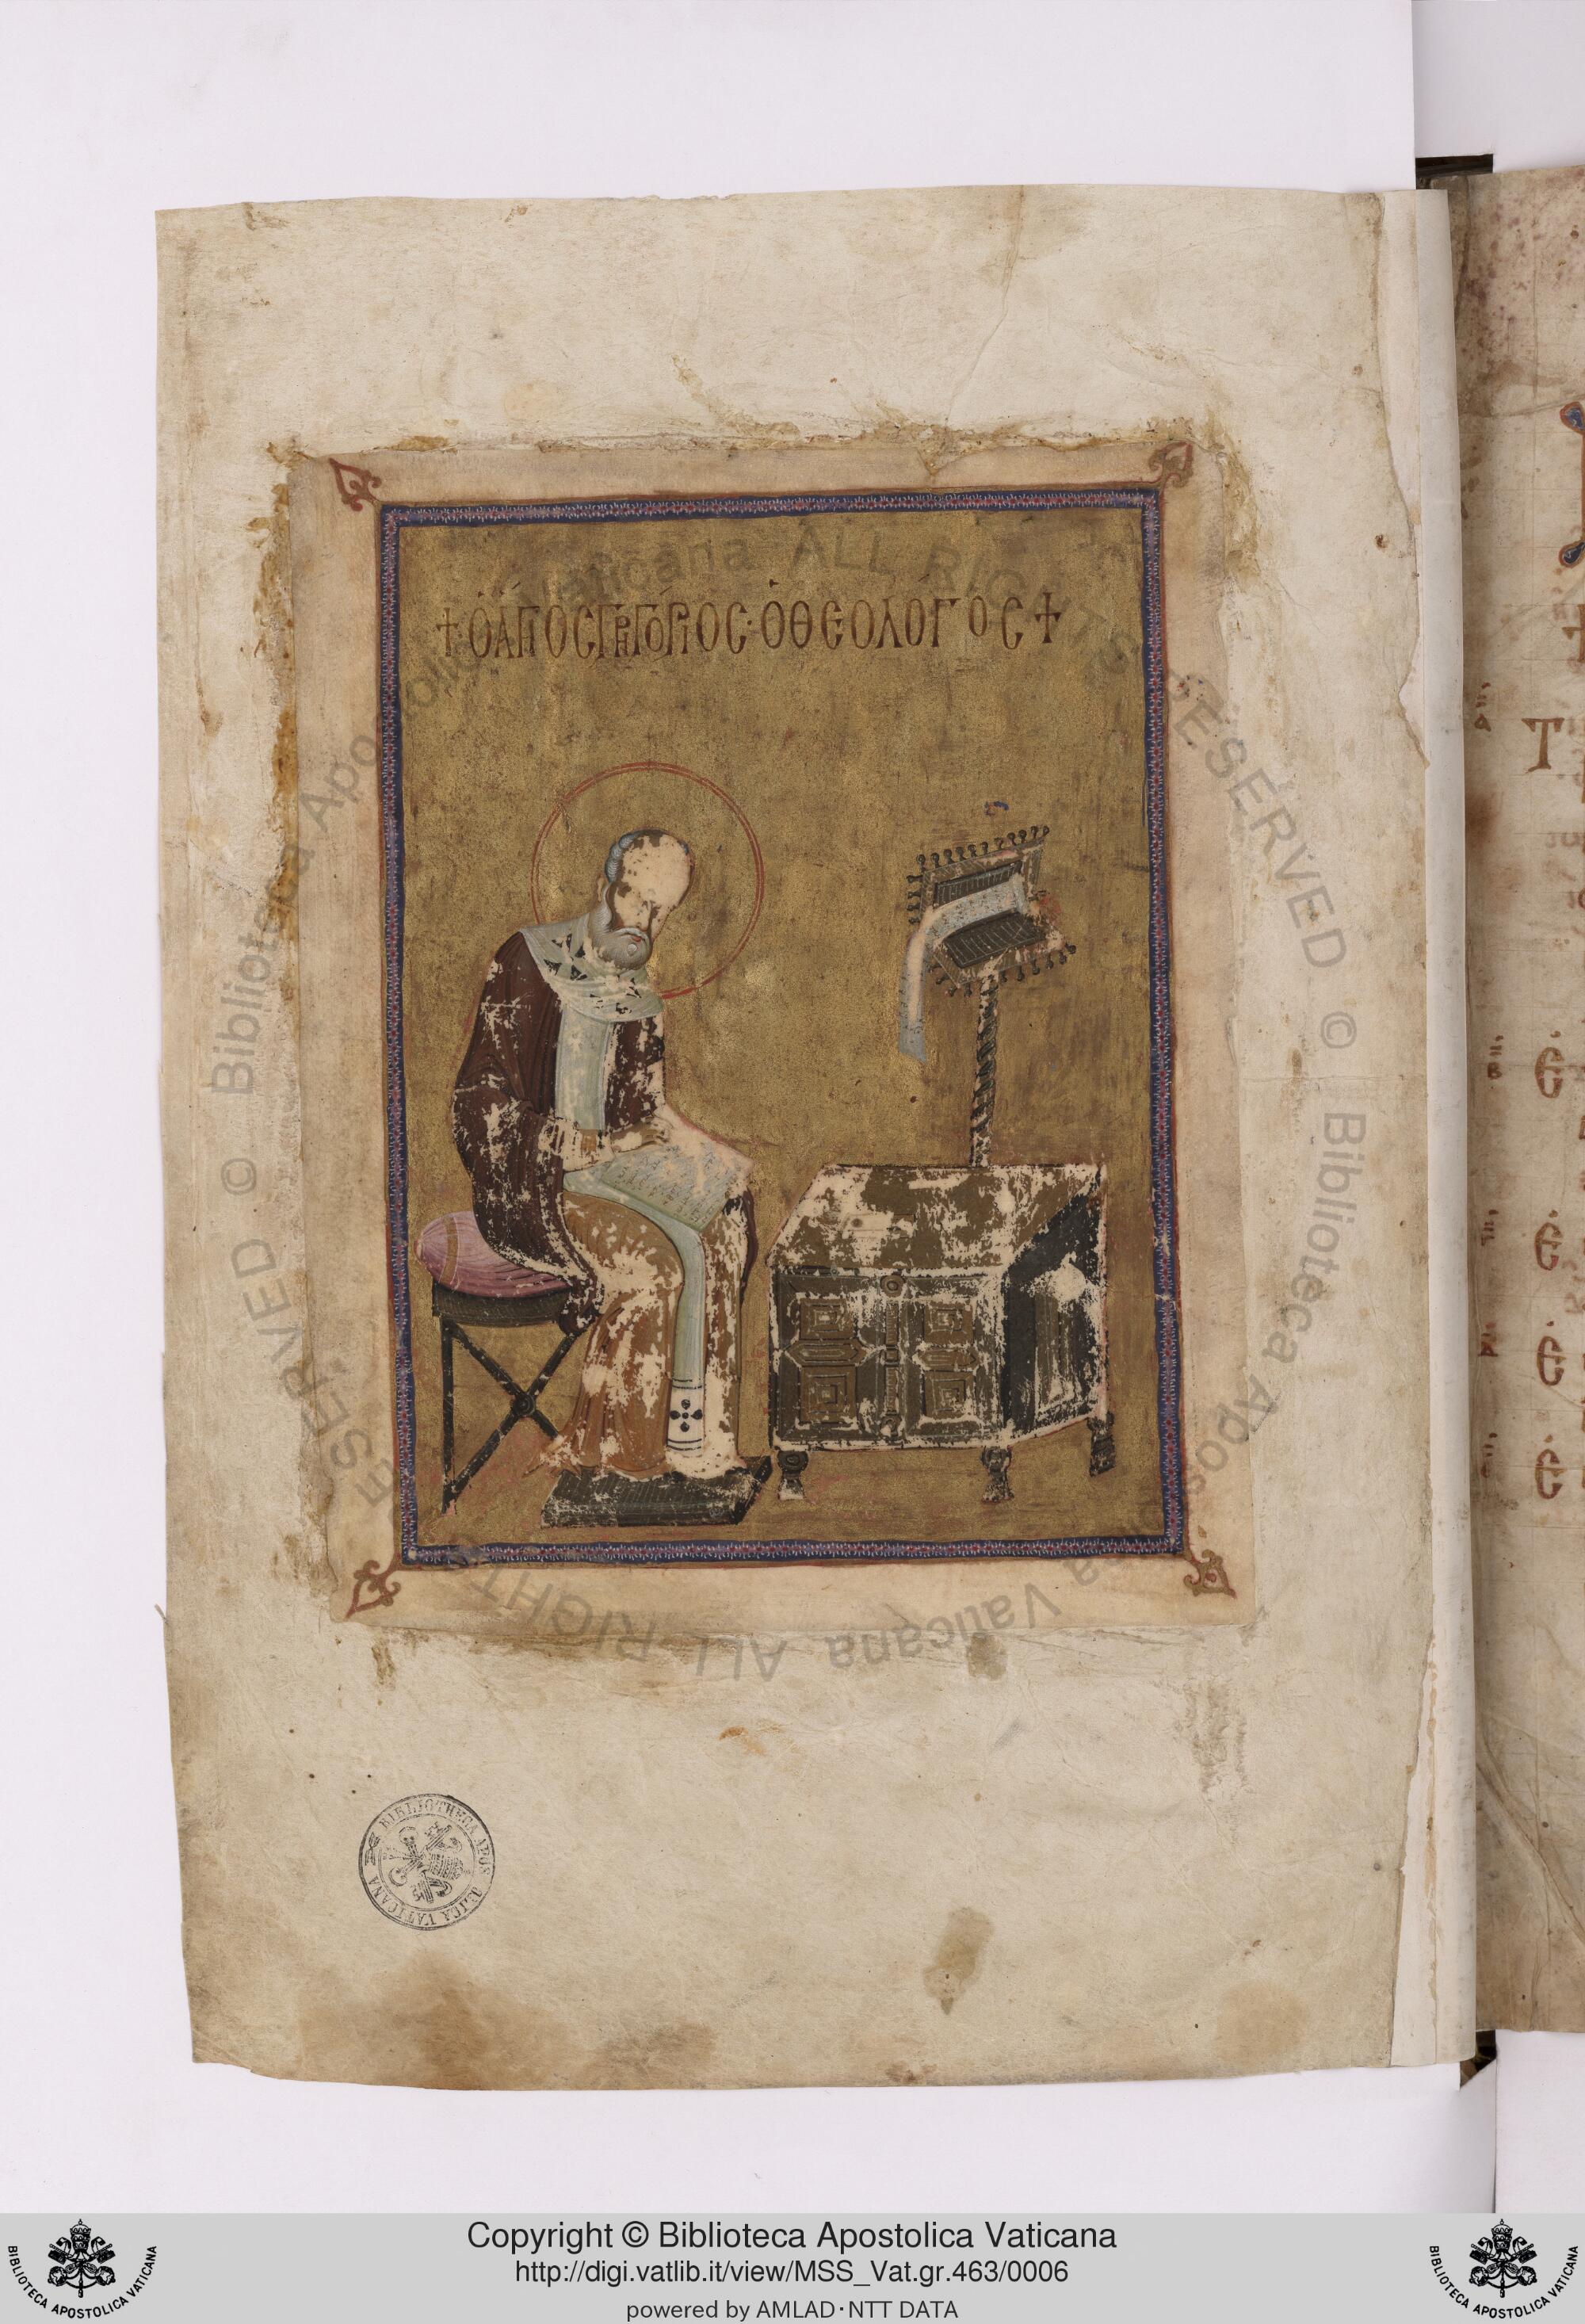 † Ὁ ἍΓΙΟϹ ΓΡΗΓΌΡΙΟϹ · Ὁ ΘΕΟΛΌΓΟϹ †
Τ
Ε
Ε
Ε
Ε
© Biblioteca Apostolica Vaticana ALL RIGHTS RESERVED
© Biblioteca Apostolica Vaticana ALL RIGHTS RESERVED
BIBLIOTHECA APOSTOLICA VATICANA
Copyright © Biblioteca Apostolica Vaticana
http://digi.vatlib.it/view/MSS_Vat.gr.463/0006
powered by AMLAD·NTT DATA
BIBLIOTECA APOSTOLICA VATICANA
BIBLIOTECA APOSTOLICA VATICANA